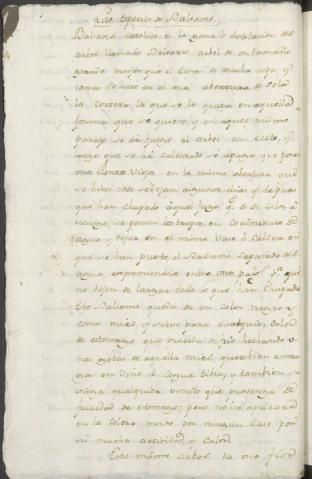 Las especies de Balsamo.
Balsamo Catolico es la goma ò destilacion del
arbol llamado Balsamo, arbol de su tamaño
grande mayor que el Limon de mucha copa, y
ramas se hace en el una abertura de sola
la corteza la que se le quita en aquella
forma que se quiere, y en aquel mismo
paraje se dà fuego al arbol con Ocote, y
luego que se hà calentado se apaga y se pone
unos lienzos Viejos en la misma abertura que
se hizo, estos se dejan algunos dias, y despues
que han chupado aquel jugo q.e es de color à
se ponen los trapos en Cocimiento de
agua y dejan en el mismo Vaso ò Caldera en
que se han puesto, el Balsamo separado del
agua, exprimiendolo entre un paño p.a que
no dejen de largar todo lo que han chupado
Este Balsamo queda de un color negro, y
como miel, y sirve para cualquier dolor
de estomago que proceda de frio hechando u
nas gotas de aquella miel que es bien amarga
en Vino ò Agua tibia, y tambien
qualquier vomito que provenga de
frialdad de estomago; pero no se aplicarà
en la Colera morbo por ningun caso, por
su mucha actividad, y Calor.
Este mismo arbol da una flor